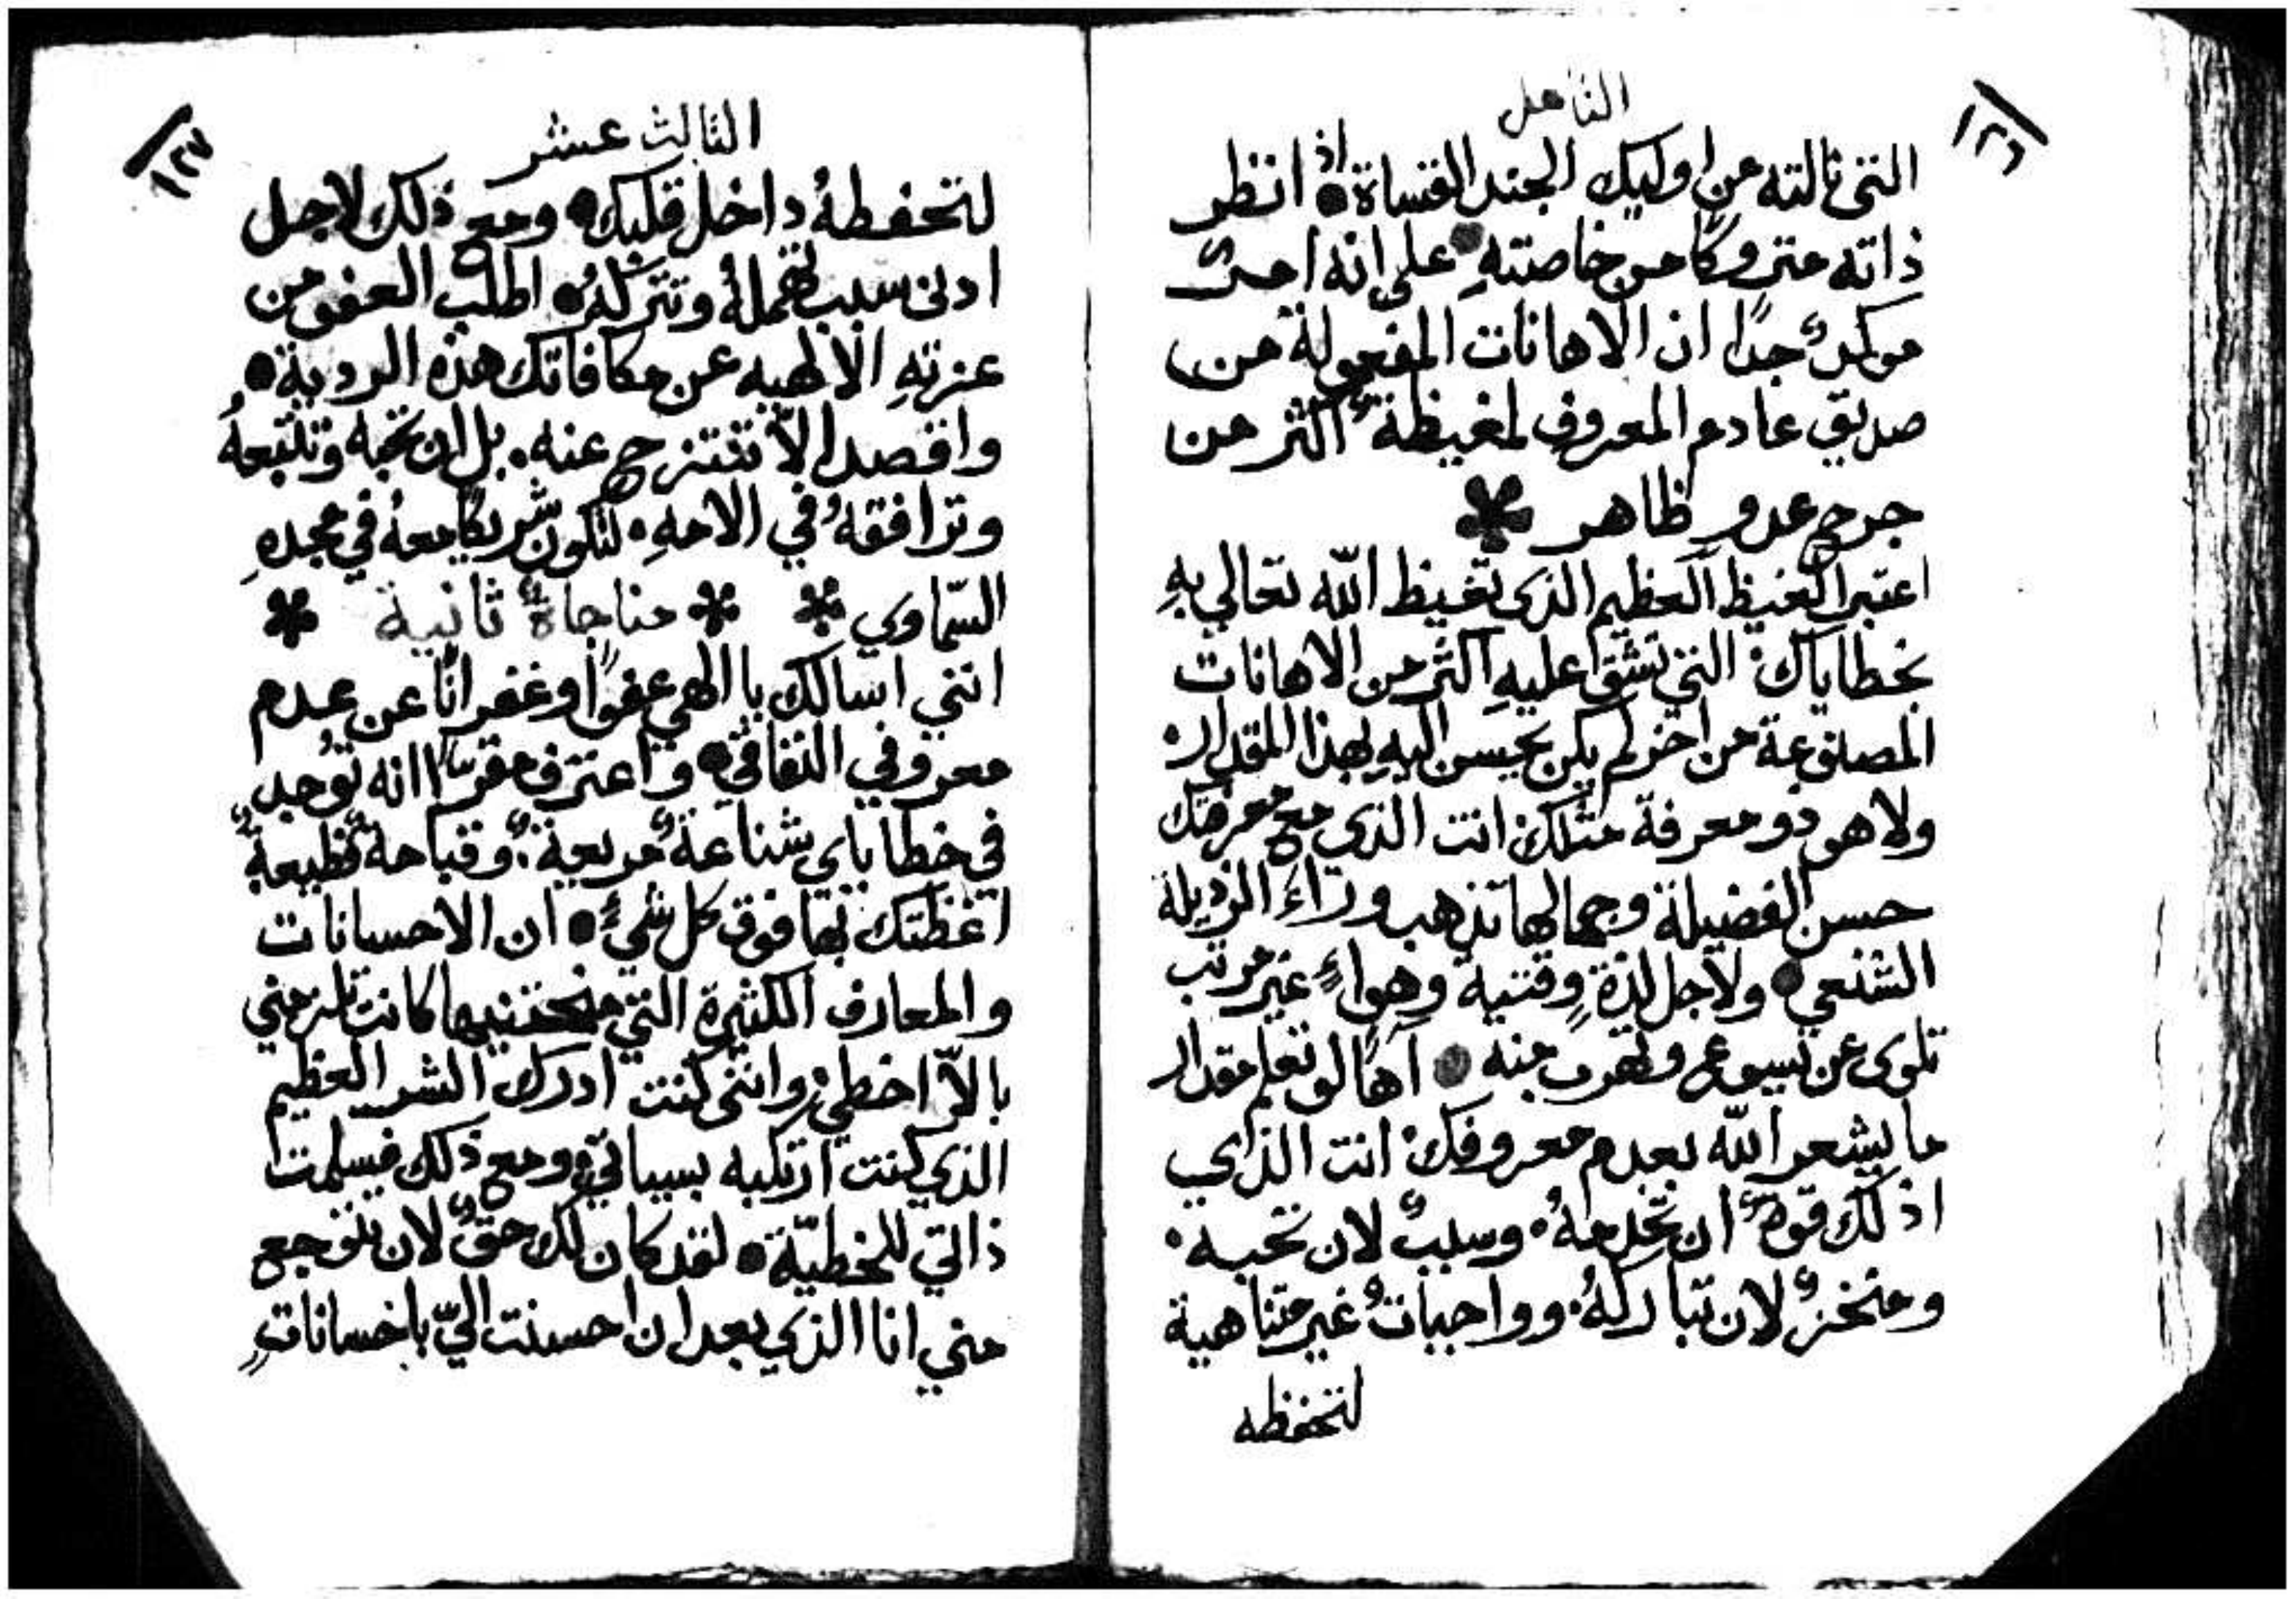 ١٢٦
التامل
التي نالته من اوليك الجند القساة اذ انظر
ذاته متروكًا من خاصتهِ على انه امرٌ
موكدٌ جدًا ان الاهانات المفعولة من
صديق عادم المعروف لمغيظةٌ اكثر من
جرح عدوٍ ظاهر
اعتبر الغيظ العظيم الذى تغيظ الله تعالي بهِ
بخطاياك التي تشق عليهِ اكثر من الاهانات
المصنوعة من اخر لم يكن يحسن اليهِ بهذا المقدار
ولا هو ذو معرفة مثلك انت الذى مع معرفتك
حسن الفضيلة وجمالها تذهب وراء الرذيلة
الشنعي ولاجل لذةٍ وقتية وهواءٍ غير مرتب
تلوى عن يسوع وتهرب منه آهًا لو تعلم مقدار
ما يشعر الله بعدم معروفك انت الذي
اذ لك قوةٌ ان تخدمهُ وسببٌ لان تحبه
ومنخزٌ لان تباركهُ وواجباتٌ غير متناهية
لتحفظه
١٢٧
الثالث عشر
لتحفظهُ داخل قلبك ومع ذلك لاجل
ادنى سبب تهملهُ وتتركهُ اطلب العفو من
عزتهِ الالهيه عن مكافاتك هذه الردية
واقصد الاّ تنتزح عنه بل ان تحبه وتتبعهُ
وترافقهُ في الامهِ لتكون شريكًا معهُ في مجدهِ
السّماوي مناجاةٌ ثانية
انني اسالك يا الهي عفوًا وغفرانًا عن عدم
معروفي النفاقي واعترف مقرًا انه توُجد
في خطاياي شناعةٌ مريعةٌ وقباحةٌ فظيعةٌ
اغظتك بها فوق كل شيءٍ ان الاحسانات
والمعارف الكثيرة التي منحتنيها كانت تلزمني
بالاّ اخطي وانني كنت ادرك الشر العظيم
الذي كنت ارتكبه بسيياتي ومع ذلك فسلمت
ذاتي للخطيّة لقد كان لك حقٌ لان تتوجع
مني انا الذي بعد ان احسنت اليّ باحساناتٍ